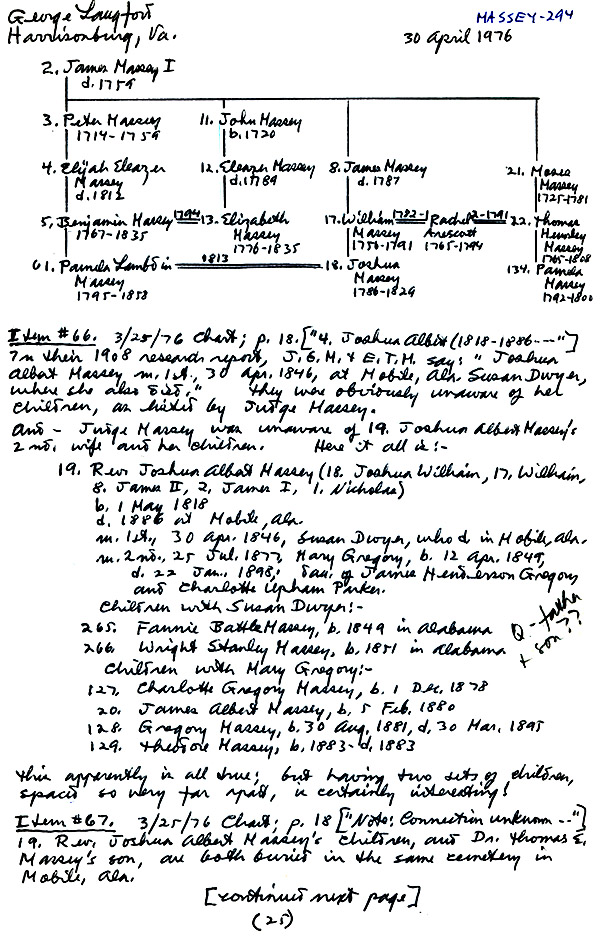 George Langford
Harrisonburg, Va.
MASSEY-294
30 April 1976
2. James Massey I
d. 1759
3. Peter Massey
1714-1759
11. John Massey
b. 1720
4. Elijah Eleazer
Massey
d. 1812
12. Eleazer Massey
d. 1789
8. James Massey
d. 1787
21. Moses
Massey
1725-1781
5. Benjamin Massey
1767-1835
1794
13. Elizabeth
Massey
1776-1835
17. William
Massey
1756-1791
1782-1
Rachel
Arescott
1765-1794
2-1791
22. Thomas
Hemsley
Massey
1765-1808
61. Pamela Lambdin
Massey
1795-1858
1813
18. Joshua
Massey
1786-1829
134. Pamela
Massey
1792-1800
Item #66. 3/25/76 Chart; p. 18. ["4. Joshua Albert (1818-1886----"]
In their 1908 research report, J.G.M. & E.T.M. say: "Joshua
Albert Massey m. 1st., 30 Apr. 1846, at Mobile, Ala. Susan Dwyer,
where she also died." They were obviously unaware of her
children, as listed by Judge Massey.
And - Judge Massey was unaware of 19. Joshua Albert Massey's
2nd. wife and her children. Here it all is:-
19. Rev. Joshua Albert Massey (18. Joshua William, 17. William,
8. James II, 2. James I, 1. Nicholas)
b. 1 May 1818
d. 1886 at Mobile, Ala.
m. 1st., 30 Apr. 1846, Susan Dwyer, who d. in Mobile, Ala.
m. 2nd., 25 Jul. 1877, Mary Gregory, b. 12 Apr. 1849,
d. 22 Jan. 1898; dau. of James Henderson Gregory
and Charlotte Upham Parker.
Children with Susan Dwyer:-
265. Fannie Battle Massey, b. 1849 in Alabama
266. Wright Stanley Massey, b. 1851 in Alabama
Q - father
+ son??
Children with Mary Gregory:-
127. Charlotte Gregory Massey, b. 1 Dec. 1878
20. James Albert Massey, b. 5 Feb. 1880
128. Gregory Massey, b. 30 Aug. 1881, d. 30 Mar. 1895
129. Theodore Massey, b. 1883-d. 1883
This apparently is all true; but having two sets of children,
spaced so very far apart, is certainly interesting!
Item #67. 3/25/76 Chart; p. 18 ["Note: Connection unknown --"]
19. Rev. Joshua Albert Massey's children, and Dr. Thomas E.
Massey's son, are both buried in the same cemetery in
Mobile, Ala.
[continued next page]
(25)